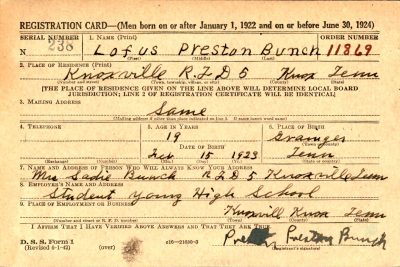 REGISTRATION CARD—(Men born on or after January 1, 1922 and on or before June 30, 1924)
SERIAL NUMBER 1. NAME (Print) ORDER NUMBER
N 238 Lofus Preston Bunch 11869
(First) (Middle) (Last)
2. PLACE OF RESIDENCE (Print)
Knoxville R.F.D 5 Knox Tenn
(Number and street) (Town, township, village, or city) (County) (State)
[THE PLACE OF RESIDENCE GIVEN ON THE LINE ABOVE WILL DETERMINE LOCAL BOARD
JURISDICTION; LINE 2 OF REGISTRATION CERTIFICATE WILL BE IDENTICAL]
3. MAILING ADDRESS
Same
[Mailing address if other than place indicated on line 2. If same insert word same]
4. TELEPHONE 5. AGE IN YEARS 6. PLACE OF BIRTH
19 Grainger
DATE OF BIRTH (Town or county)
Feb 15 1923 Tenn
(Exchange) (Number) (Mo.) (Day) (Yr.) (State or country)
7. NAME AND ADDRESS OF PERSON WHO WILL ALWAYS KNOW YOUR ADDRESS
Mrs Sadie Bunch R.F.D 5 Knoxville Tenn
8. EMPLOYER'S NAME AND ADDRESS
Student Young High School
9. PLACE OF EMPLOYMENT OR BUSINESS
Knoxvill Knox Tenn
(Number and street or R. F. D. number) (Town) (County) (State)
I AFFIRM THAT I HAVE VERIFIED ABOVE ANSWERS AND THAT THEY ARE TRUE.
Preston Bunch
D. S. S. Form 1
(Revised 6-1-42) (over) c16—21630-3